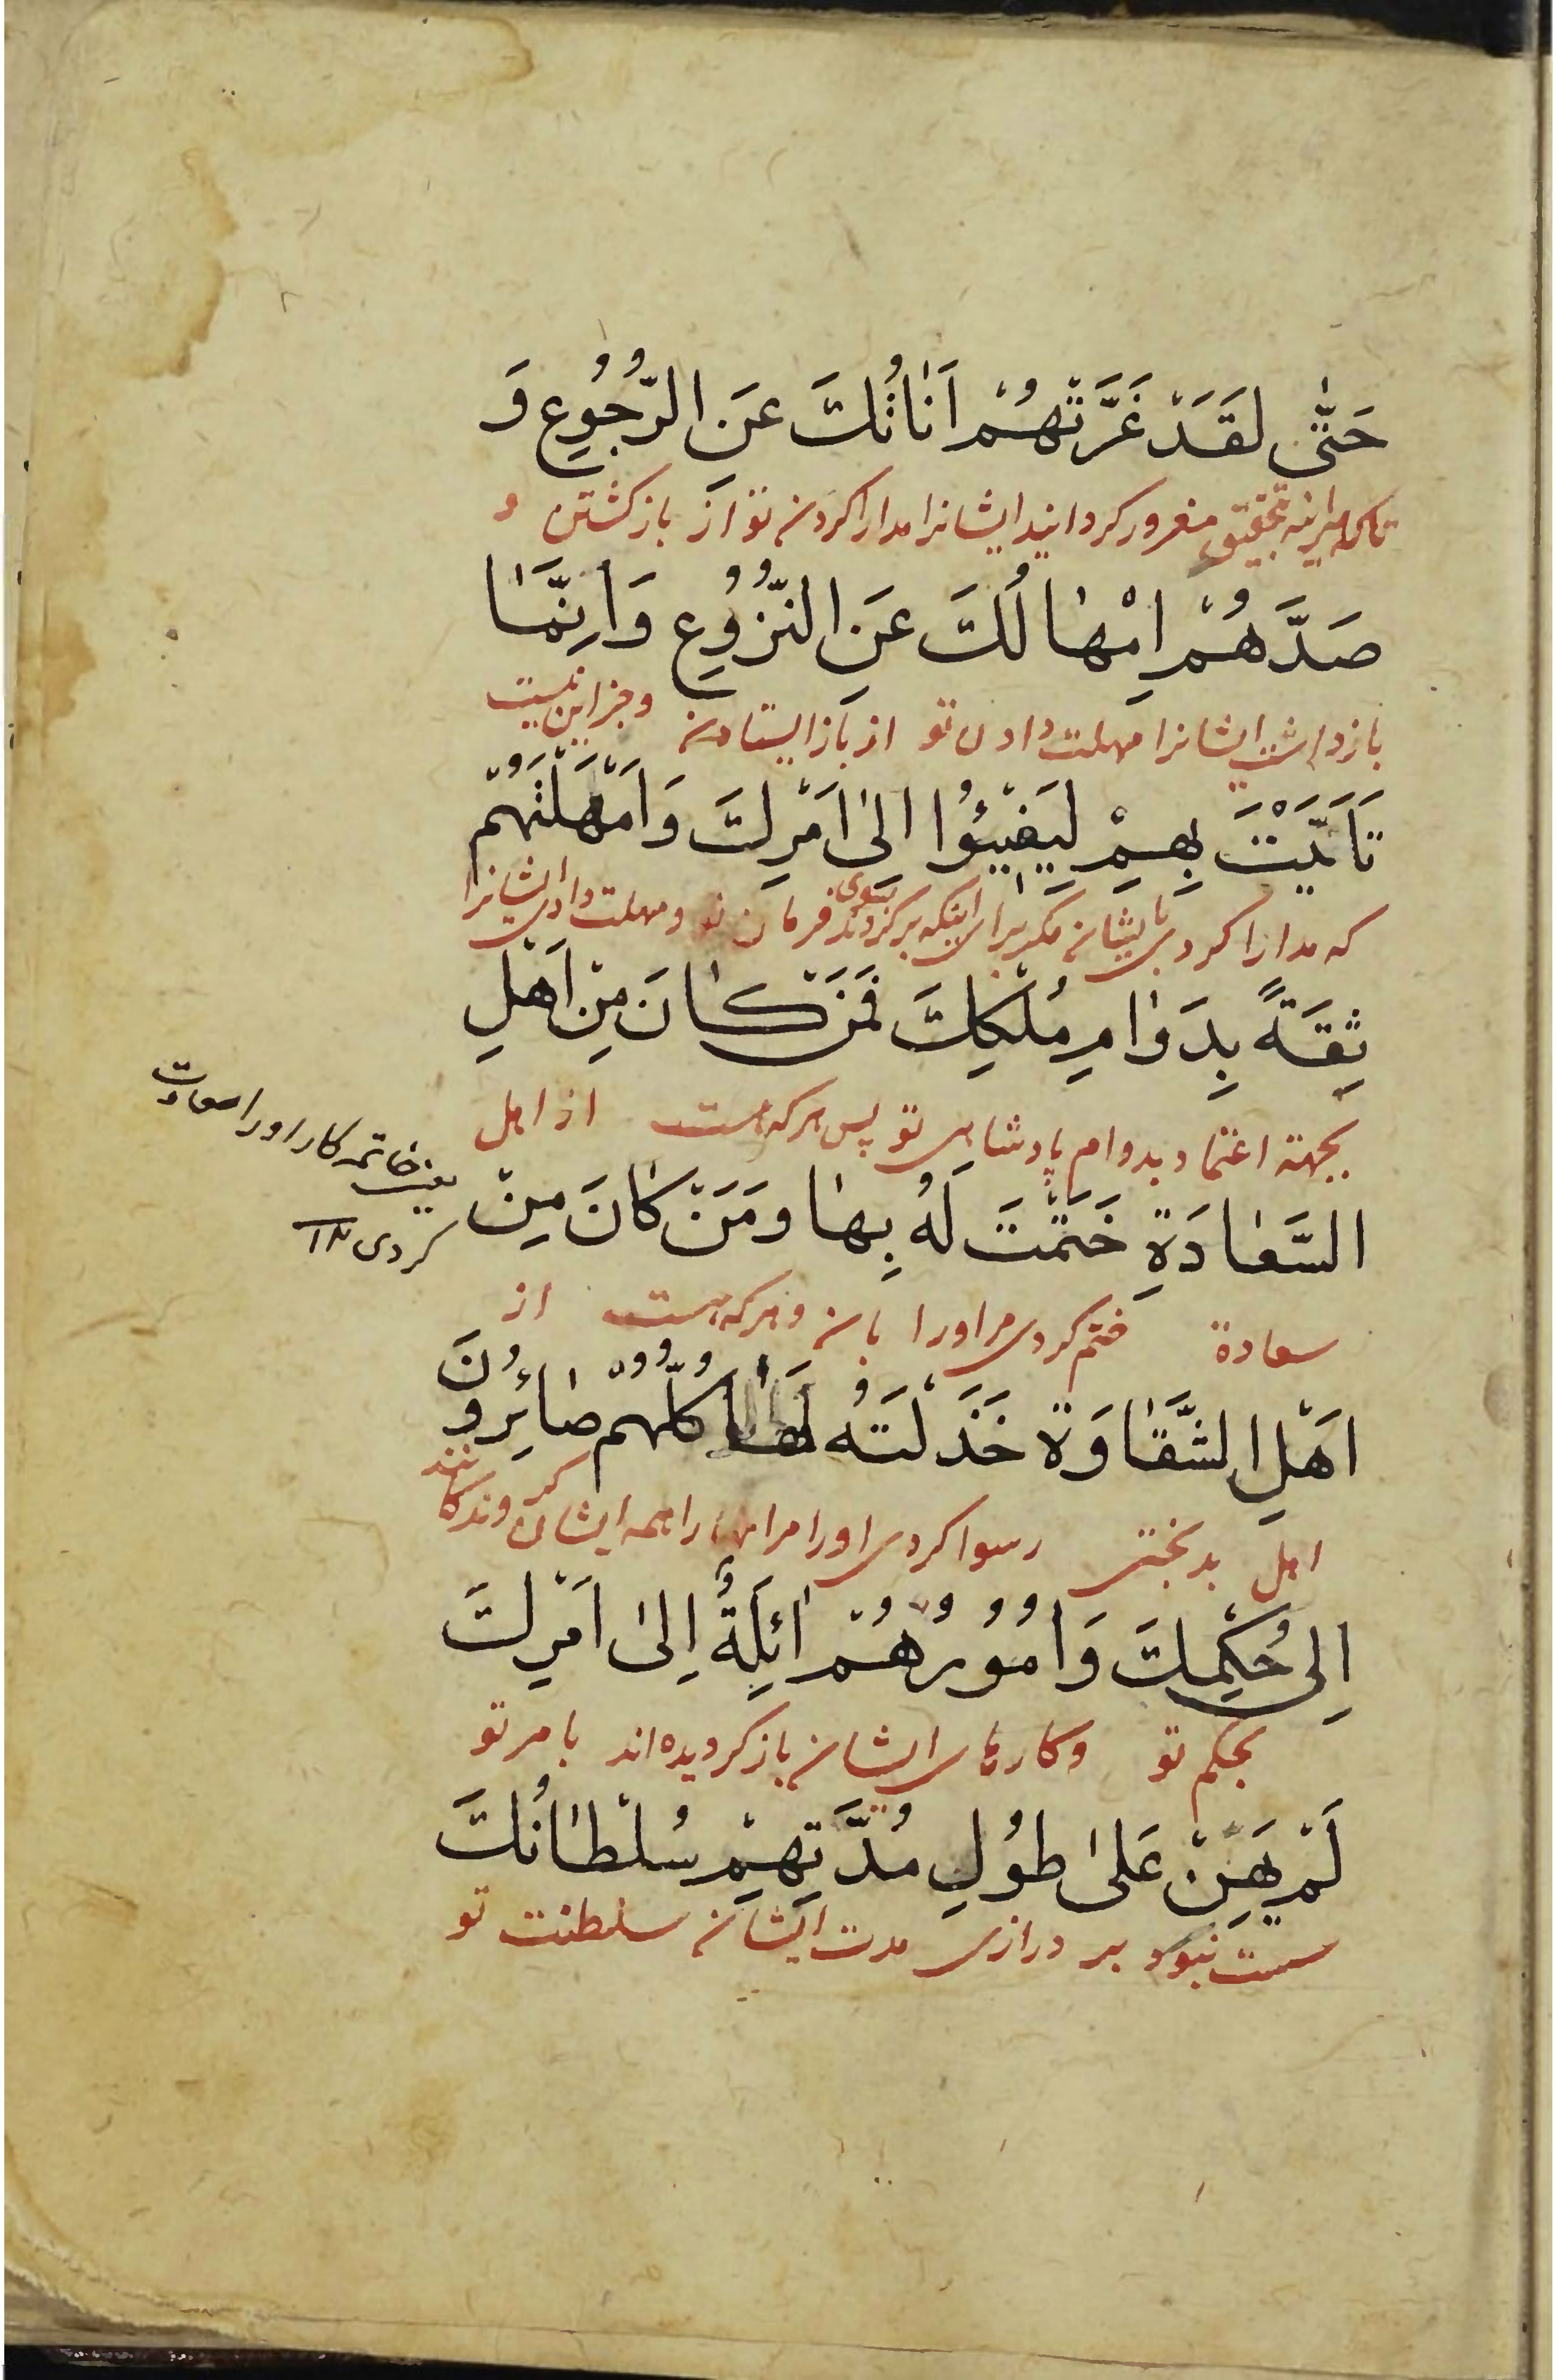 حَتّٰى لَقَدْ غَرَّتْهُمْ اَنَاتُكَ عَنِ الرُّجُوعِ وَ
تا که هر اینه بتحقیق مغرور کردانید ایشانرا مدارا کردن تو از باز کشتن و
صَدَّهُمْ اِمْهَالُكَ عَنِ النُّزُوعِ وَاِنَّمَا
بازداشت ایشانرا مهلت دادن تو از باز ایستادن و جز این نیست
تَاَنَّيْتَ بِهِمْ لِيَفِيئُوا اِلىٰ اَمْرِكَ وَاَمْهَلْتَهُمْ
که مدارا کردی بایشان مکر برای اینکه برکردند بسوی فرمان تو و مهلت دادی ایشانرا
ثِقَةً بِدَوَامِ مُلْكِكَ فَمَنْ كَانَ مِنْ اَهْلِ
بجهة اعتماد بدوام پادشاهی تو پس هر که هست از اهل
السَّعَادَةِ خَتَمْتَ لَهُ بِهَا وَمَنْ كَانَ مِنْ
یعنی خاتمه کار او را سعادت
کردی ۱۲
سعادة ختم کردی مر او را بان و هر که هست از
اَهْلِ الشَّقَاوَةِ خَذَلْتَهُ لَهَا كُلُّهُمْ صَائِرُونَ
اهل بدبختی رسوا کردی او را مر انرا همه ایشان
اِلى حُكْمِكَ وَاُمُورُهُمْ اٰئِلَةٌ اِلىٰ اَمْرِكَ
بحکم تو و کارهای ایشان باز کردیده اند بامر تو
لَمْ يَهِنْ عَلىٰ طُولِ مُدَّتِهِمْ سُلْطَانُكَ
سست نبود بر درازی مدت ایشان سلطنت تو